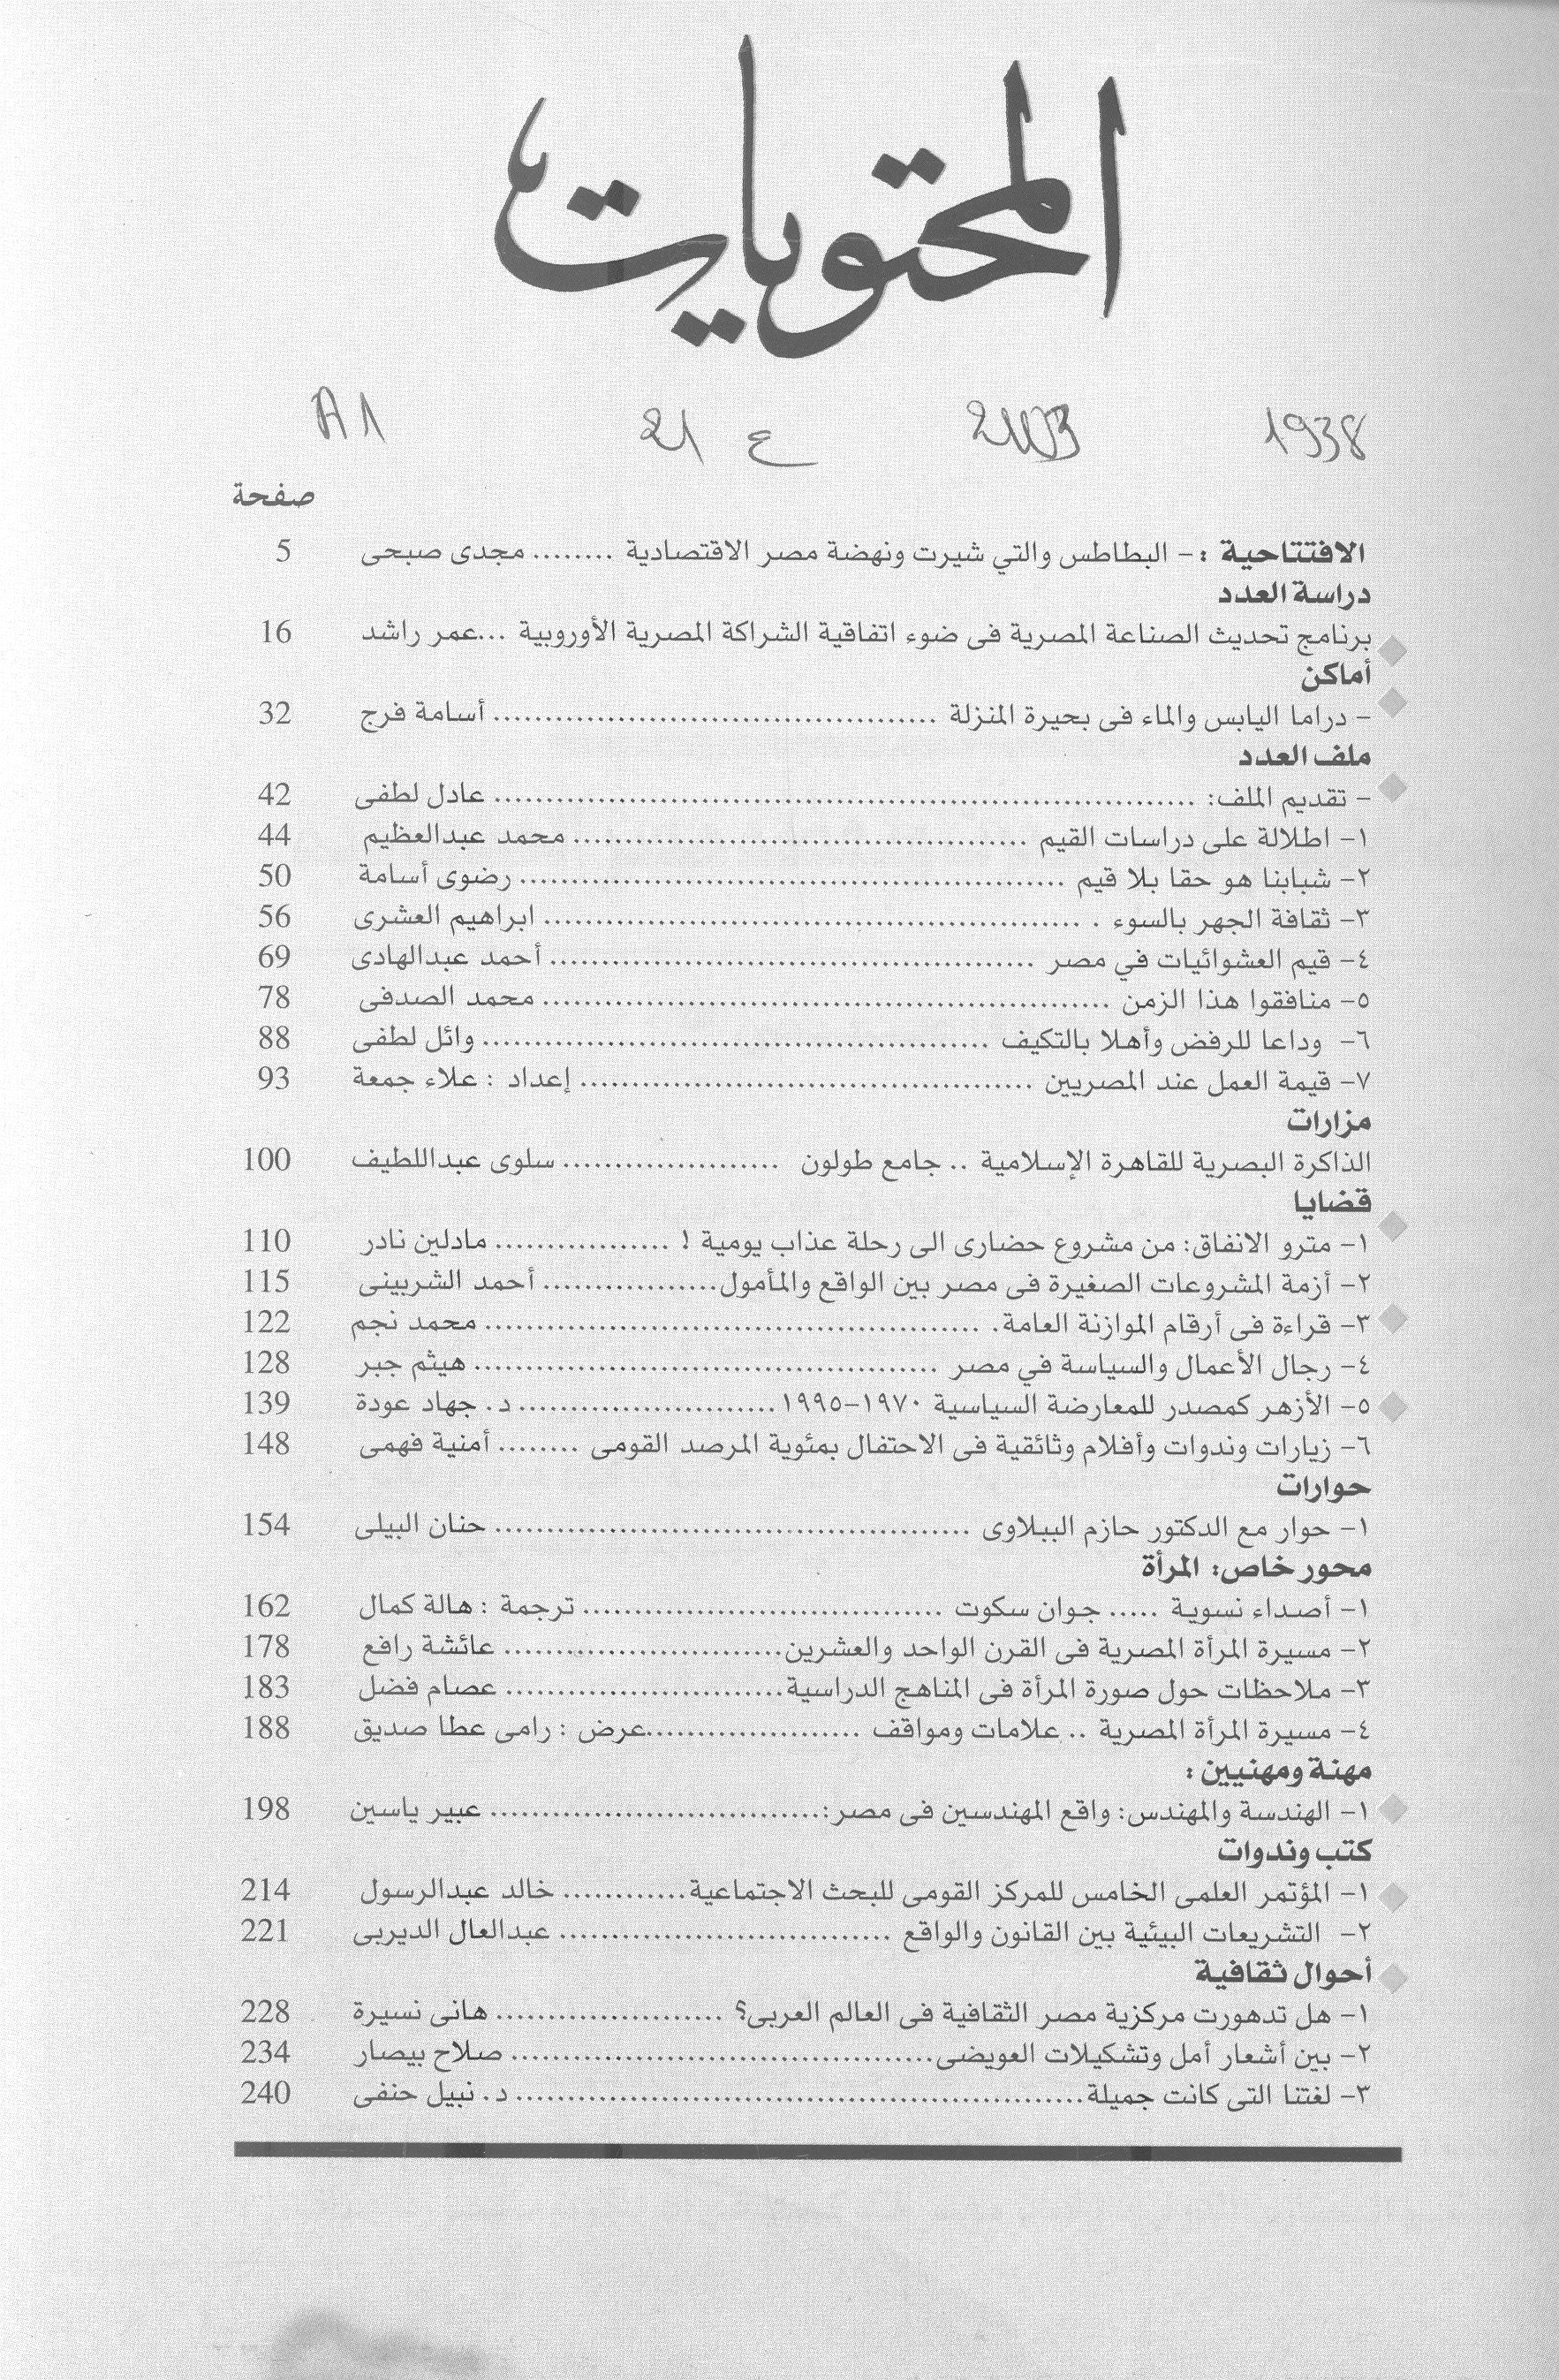 المحتويات
1938 2003 ع 21 A1
صفحة
الافتتاحية : - البطاطس والتي شيرت ونهضة مصر الاقتصادية ........ مجدى صبحى 5
دراسة العدد
برنامج تحديث الصناعة المصرية فى ضوء اتفاقية الشراكة المصرية الأوروبية ...عمر راشد 16
أماكن
- دراما اليابس والماء فى بحيرة المنزلة ........................................... أسامة فرج 32
ملف العدد
- تقديم الملف: .................................................................... عادل لطفى 42
١- اطلالة على دراسات القيم ............................................ محمد عبدالعظيم 44
٢- شبابنا هو حقا بلا قيم ..................................................... رضوى أسامة 50
٣- ثقافة الجهر بالسوء . .................................................... ابراهيم العشرى 56
٤- قيم العشوائيات في مصر ............................................... أحمد عبدالهادى 69
٥- منافقوا هذا الزمن ....................................................... محمد الصدفى 78
٦- وداعا للرفض وأهلا بالتكيف ................................................. وائل لطفى 88
٧- قيمة العمل عند المصريين ............................................ إعداد : علاء جمعة 93
مزارات
الذاكرة البصرية للقاهرة الإسلامية .. جامع طولون ..................... سلوى عبداللطيف 100
قضايا
١- مترو الانفاق: من مشروع حضارى الى رحلة عذاب يومية ! ................. مادلين نادر 110
٢- أزمة المشروعات الصغيرة فى مصر بين الواقع والمأمول................. أحمد الشربينى 115
٣- قراءة فى أرقام الموازنة العامة. ................................................ محمد نجم 122
٤- رجال الأعمال والسياسة في مصر ............................................. هيثم جبر 128
٥- الأزهر كمصدر للمعارضة السياسية ١٩٧٠-١٩٩٥......................... د. جهاد عودة 139
٦- زيارات وندوات وأفلام وثائقية فى الاحتفال بمئوية المرصد القومى ........ أمنية فهمى 148
حوارات
١- حوار مع الدكتور حازم الببلاوى .............................................. حنان البيلى 154
محور خاص: المرأة
١- أصداء نسوية ..... جوان سكوت ................................... ترجمة : هالة كمال 162
٢- مسيرة المرأة المصرية فى القرن الواحد والعشرين........................... عائشة رافع 178
٣- ملاحظات حول صورة المرأة فى المناهج الدراسية........................... عصام فضل 183
٤- مسيرة المرأة المصرية .. علامات ومواقف .....................عرض : رامى عطا صديق 188
مهنة ومهنيين :
١- الهندسة والمهندس: واقع المهندسين فى مصر:................................ عبير ياسين 198
كتب وندوات
١- المؤتمر العلمى الخامس للمركز القومى للبحث الاجتماعية............ خالد عبدالرسول 214
٢- التشريعات البيئية بين القانون والواقع ................................ عبدالعال الديربى 221
أحوال ثقافية
١- هل تدهورت مركزية مصر الثقافية فى العالم العربى؟ ...................... هانى نسيرة 228
٢- بين أشعار أمل وتشكيلات العويضى......................................... صلاح بيصار 234
٣- لغتنا التى كانت جميلة....................................................... د. نبيل حنفى 240